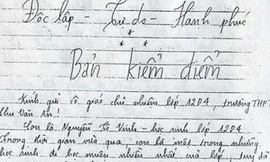 Độc lập - Tự do - Hạnh phúc
Bản kiểm điểm
Kính gửi cô giáo chủ nhiệm lớp 12D4, trường THPT
Chu Văn An!
Con là Nguyễn Tú Vinh - học sinh lớp 12D4
Trong thời gian vừa qua, con là một trong những
học sinh đi học muộn nhiều nhất của lớp